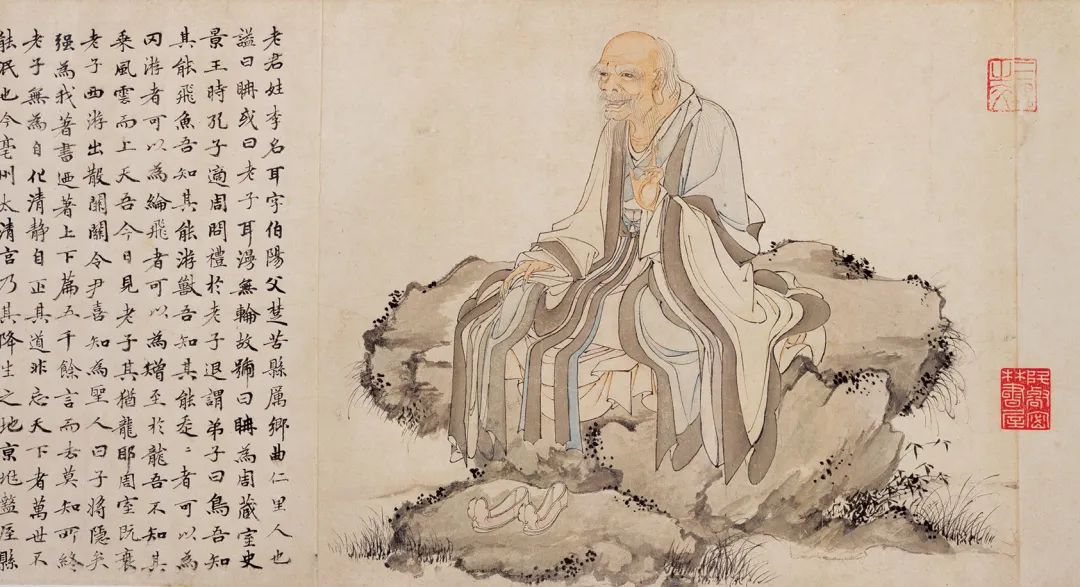 老君姓李名耳字伯陽父楚苦縣厲鄉曲仁里人也
謚曰聃或曰老子耳漫無輪故號曰聃為周藏室史
景王時孔子適周問禮於老子退謂弟子曰鳥吾知
其能飛魚吾知其能游獸吾知其能走〻者可以為
罔游者可以為綸飛者可以為矰至於龍吾不知其
乘風雲而上天吾今日見老子其猶龍耶周室既衰
老子西游出散關關令尹喜知為聖人曰子將隱矣
强為我著書迺著上下篇五千餘言而去莫知所終
老子無為自化清静自正其道非忘天下者萬世不
能泯也今亳州太清宫乃其降生之地京兆盩厔縣